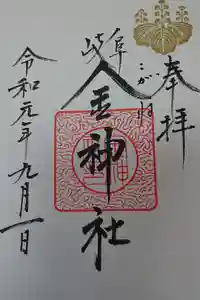 奉拝
岐阜
こがね
金神社
令和元年九月一日